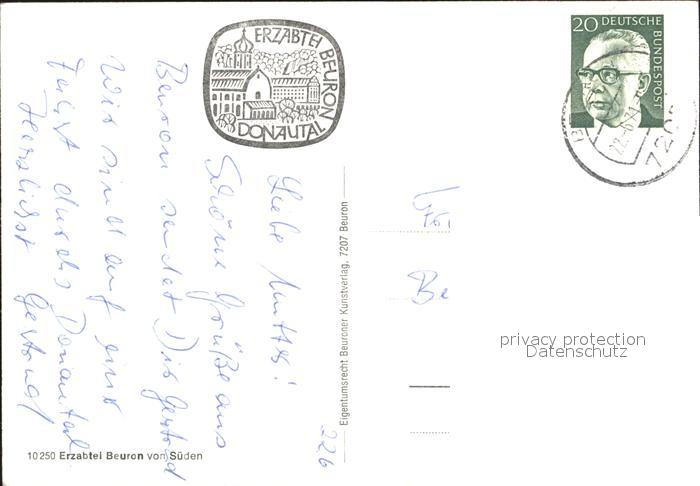 ERZABTEI BEURON
DONAUTAL
20 DEUTSCHE
BUNDESPOST
720
22.6
Liebe Mutter!
Schöne Grüße aus
Beuron sendet Dir Gertrud
Wir sind auf einer
Fahrt durchs Donautal
Herzlichst Gertrud
Be
privacy protection
Datenschutz
Eigentumsrecht Beuroner Kunstverlag, 7207 Beuron
10250 Erzabtei Beuron von Süden